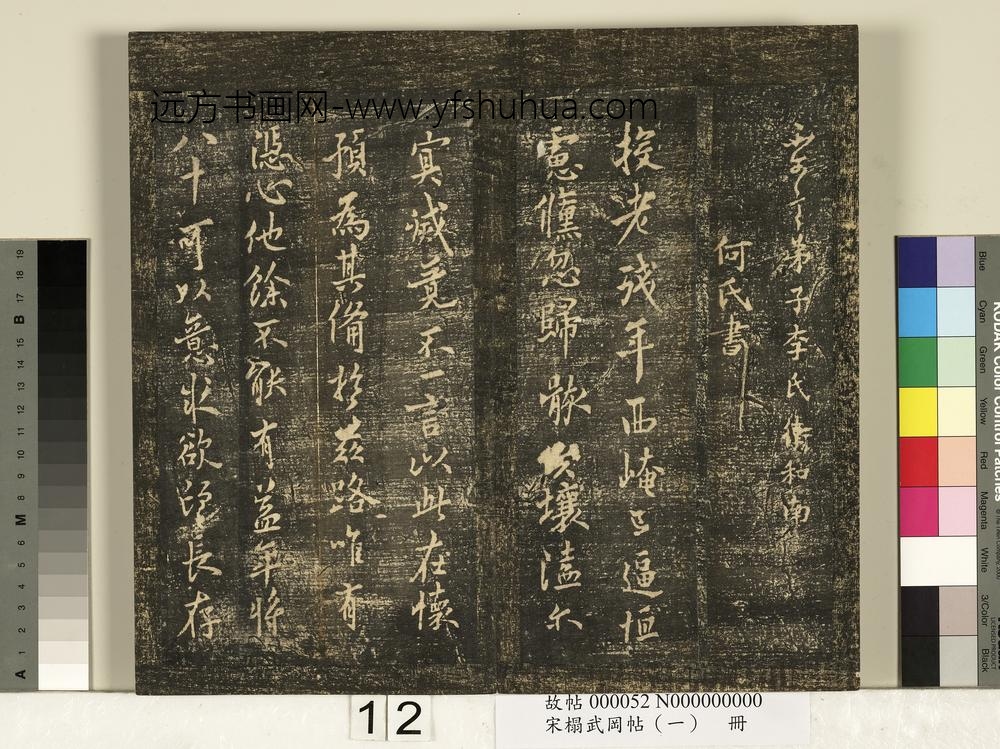 远方书画网-www.yfshuhua.com
弟子李氏衛和南
何氏書
投老殘年西崦已逼恒
慮儻忽歸骸壤溘尔
冥滅竟不一言以此在懷
預為其備於茲路唯有
憑心他餘不能有益年將
八十可以意求欲長存
12
故帖 000052 N000000000
宋榻武岡帖（一） 冊
KODAK Color Control Patches
Blue
Cyan
Green
Yellow
Red
Magenta
White
3/Color
Black
A 1 2 3 4 5 6 M 8 9 10 11 12 13 14 15 B 17 18 19